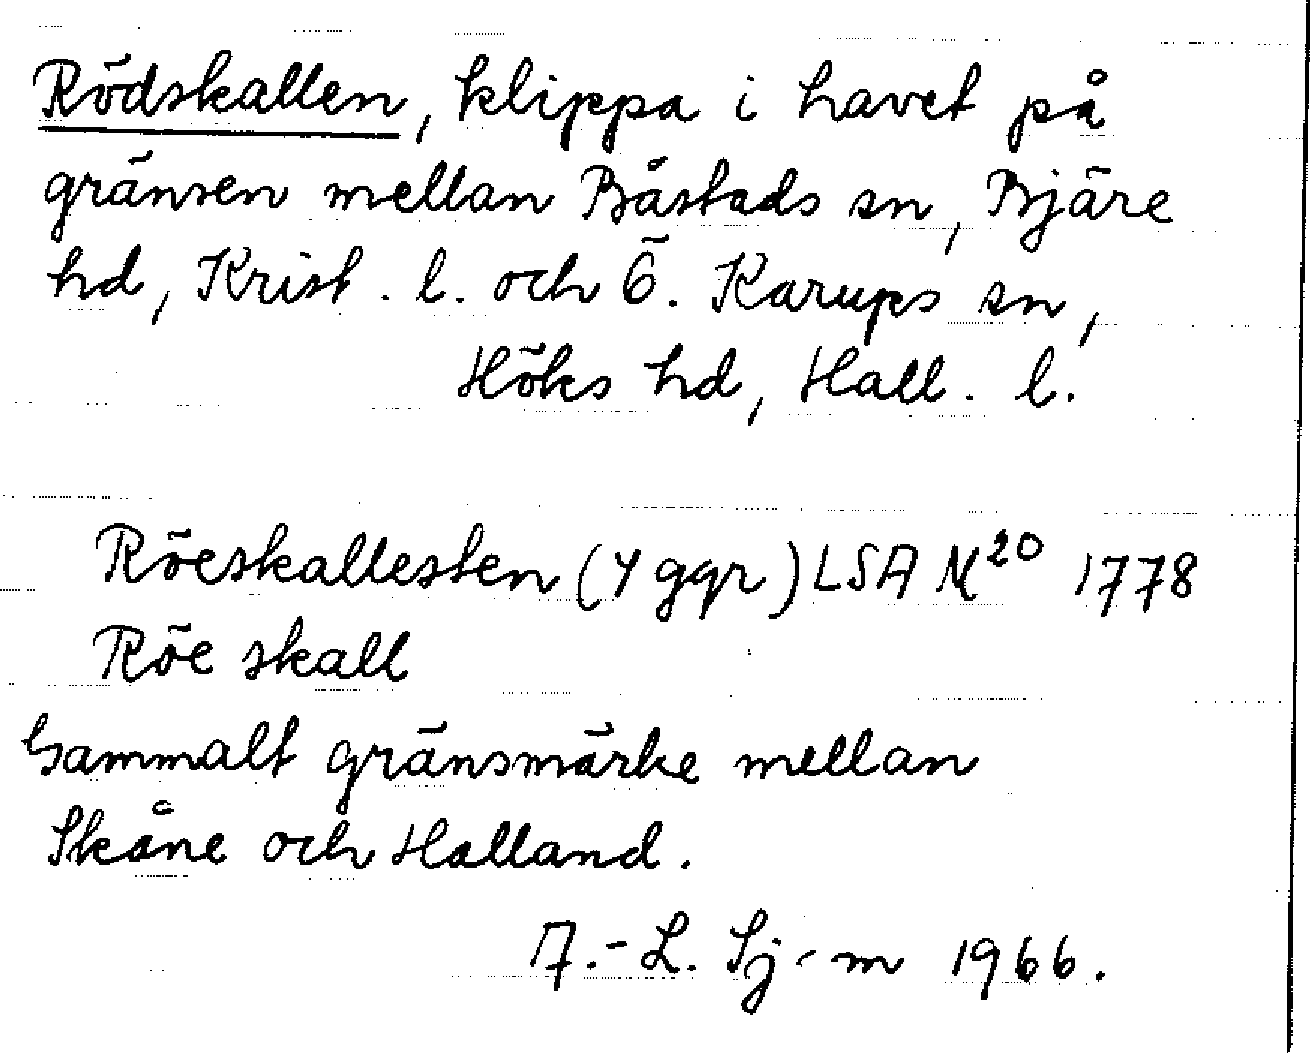 Rödskallen, klippa i havet på
gränsen mellan Båstads sn, Bjäre
hd, Krist. l. och Ö. Karups sn,
Höks hd, Hall. l.
Röeskallesten (4 ggr) LSA N²⁰ 1778
Röe skall
Gammalt gränsmärke mellan
Skåne och Halland.
A.-L. Sj-m 1966.